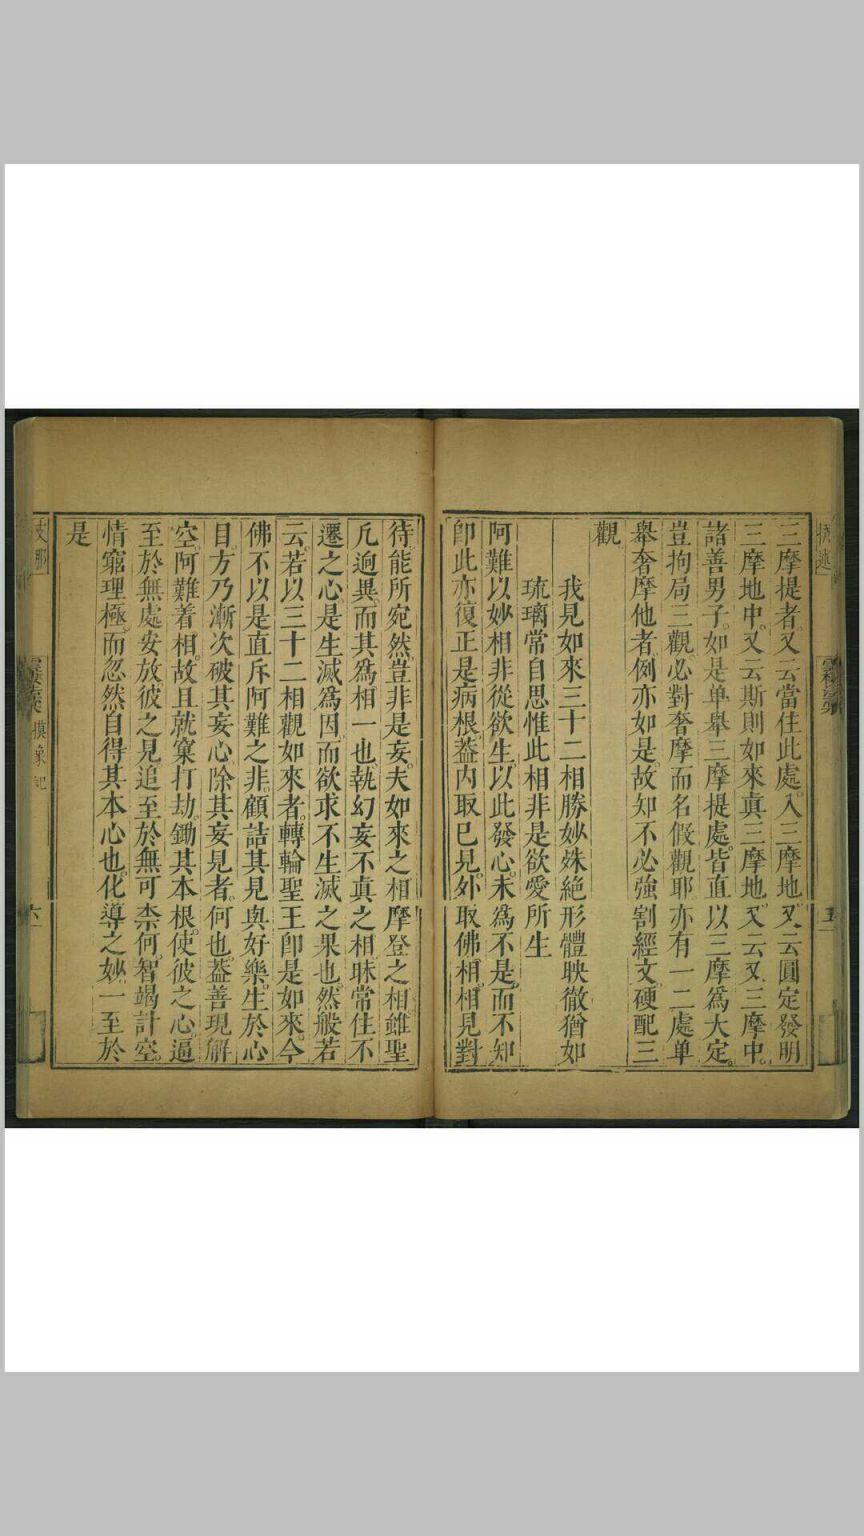 三摩提者。又云當住此處。入三摩地。又云圓定發明
三摩地中。又云斯則如來真三摩地。又云又三摩中。
諸善男子。如是单舉三摩提處。皆直以三摩爲大定。
豈拘局三觀。必對奢摩而名假觀耶。亦有一二處单
舉奢摩他者。例亦如是。故知不必強割經文。硬配三
觀
我見如來三十二相勝妙殊絶形體映徹猶如
琉璃常自思惟此相非是欲愛所生
阿難以妙相非從欲生。以此發心。未爲不是。而不知
卽此亦復正是病根。葢内取已見。外取佛相。相見對
待。能所宛然。豈非是妄。夫如來之相。摩登之相。雖聖
凡逈異。而其爲相一也。執幻妄不真之相。昧常住不
遷之心。是生滅爲因。而欲求不生滅之果也。然般若
云。若以三十二相觀如來者。轉輪聖王卽是如來。今
佛不以是直斥阿難之非。顧詰其見與好樂。生於心
目。方乃漸次破其妄心。除其妄見者。何也。葢善現解
空。阿難着相。故且就窠打劫。鋤其本根。使彼之心逼
至於無處安放。彼之見追至於無可柰何。智竭計空。
情窮理極。而忽然自得其本心也。化導之妙。一至於
是
摸象記
六
五